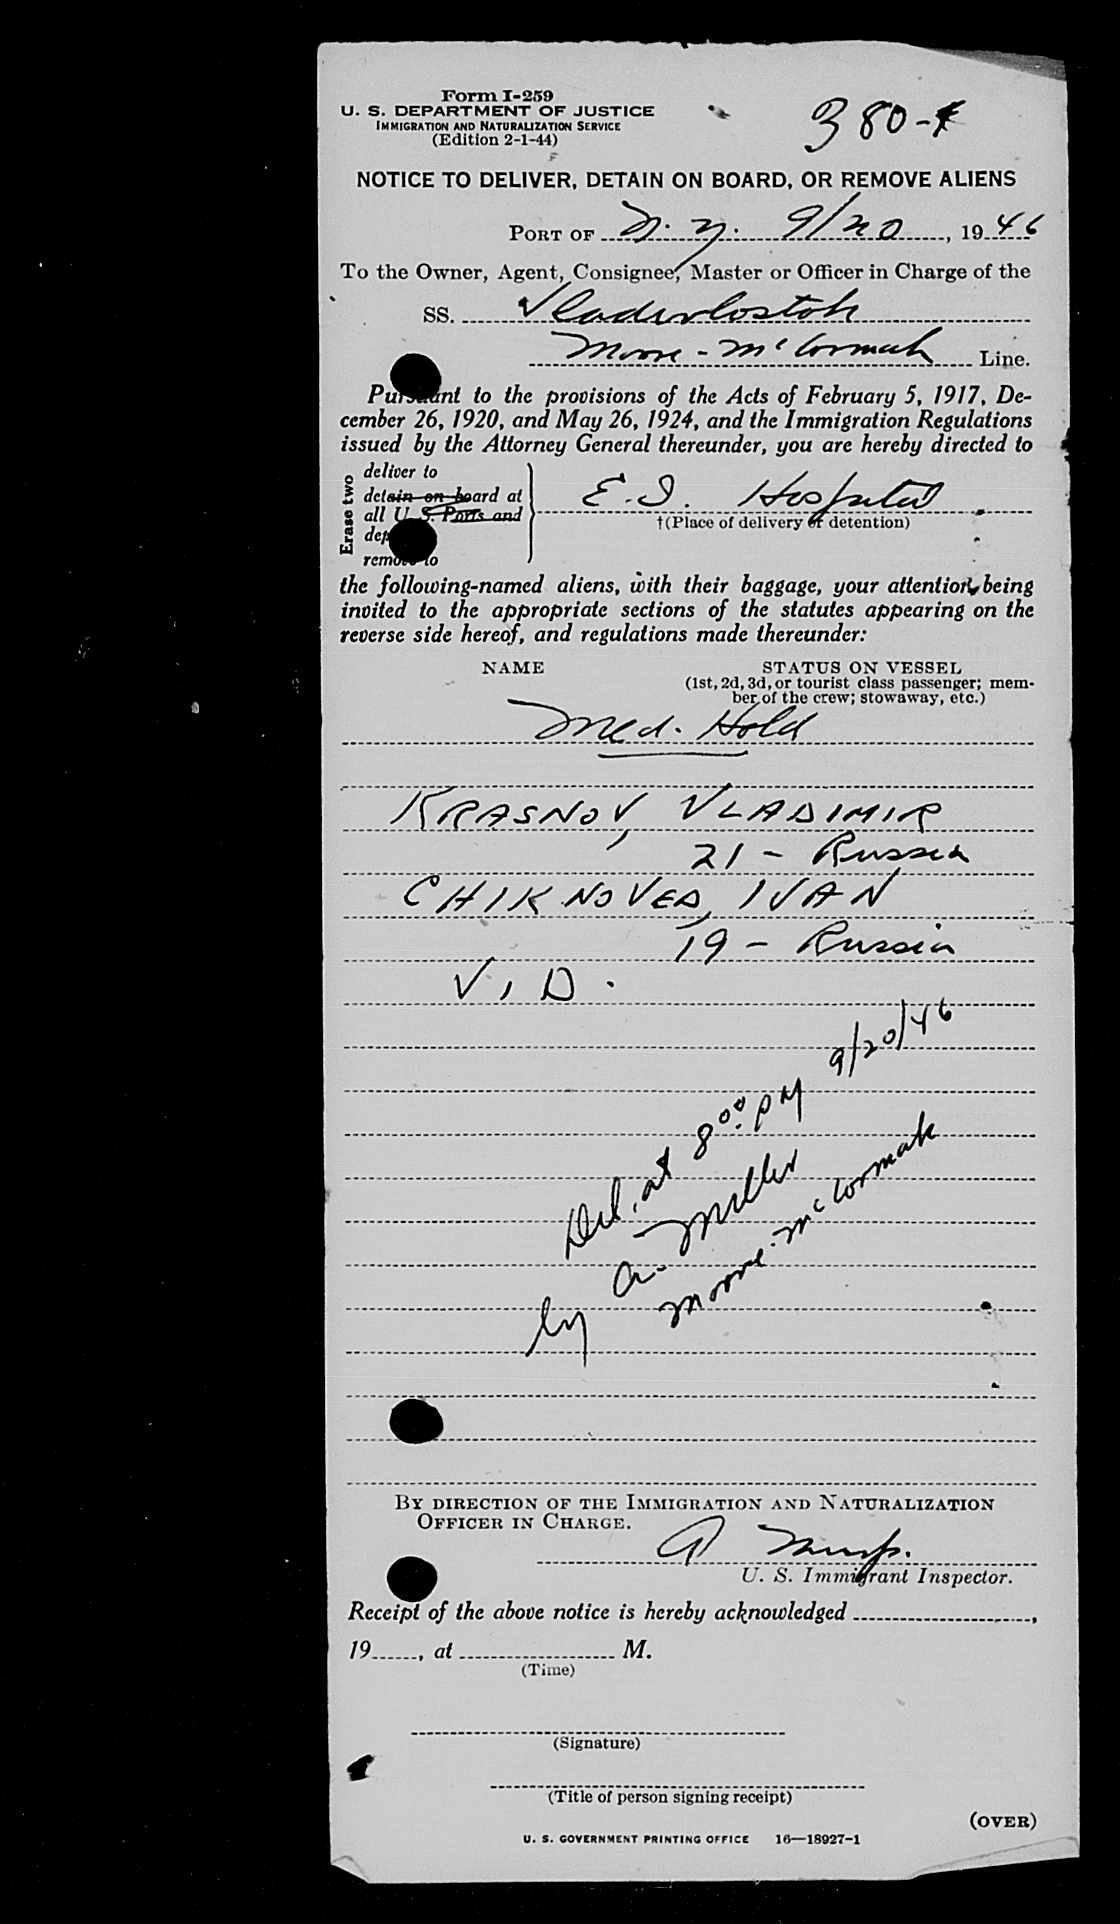 Form I-259
U. S. DEPARTMENT OF JUSTICE
IMMIGRATION AND NATURALIZATION SERVICE
(Edition 2-1-44)
380-
NOTICE TO DELIVER, DETAIN ON BOARD, OR REMOVE ALIENS
PORT OF N. Y. 9/20, 1946
To the Owner, Agent, Consignee, Master or Officer in Charge of the
SS. Vladivlostok
Moore-McCormack Line.
Pursuant to the provisions of the Acts of February 5, 1917, De-
cember 26, 1920, and May 26, 1924, and the Immigration Regulations
issued by the Attorney General thereunder, you are hereby directed to
Erase two
deliver to
detain on board at
all U. S. Ports and
dep
remove to
E. I. Hospital
†(Place of delivery or detention)
the following-named aliens, with their baggage, your attention being
invited to the appropriate sections of the statutes appearing on the
reverse side hereof, and regulations made thereunder:
NAME STATUS ON VESSEL
(1st, 2d, 3d, or tourist class passenger; mem-
ber of the crew; stowaway, etc.)
Med. Hold
KRASNOV, VLADIMIR
21 - Russia
CHIKNOVED, IVAN
19 - Russia
V.D.
Del. at 8:00 PM 9/20/46
by A. Miller
Moore-McCormack
BY DIRECTION OF THE IMMIGRATION AND NATURALIZATION
OFFICER IN CHARGE.
U. S. Immigrant Inspector.
Receipt of the above notice is hereby acknowledged ,
19 , at M.
(Time)
(Signature)
(Title of person signing receipt)
(OVER)
U. S. GOVERNMENT PRINTING OFFICE 16—18927-1